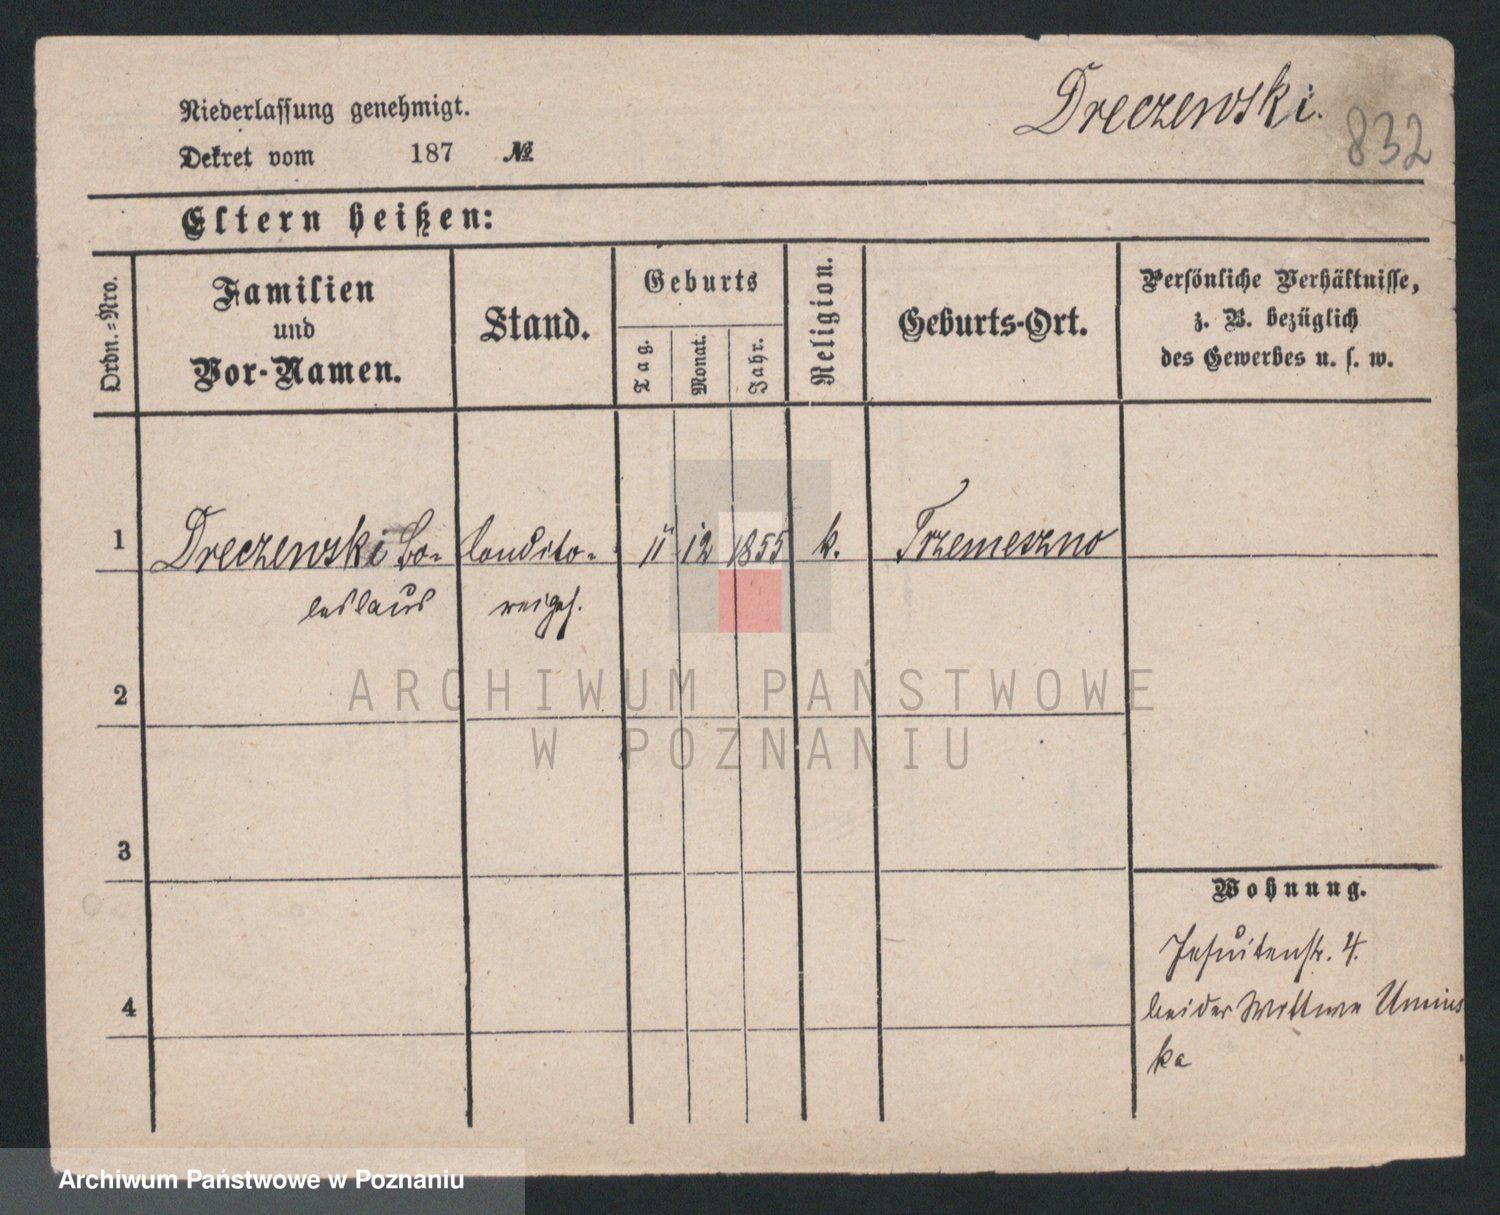 Dreczewski.
832
Niederlassung genehmigt.
Dekret vom 187 №
Eltern heißen:
Ordn.=Nro.
Familien
und
Vor-Namen.
Stand.
Geburts
Tag.
Monat.
Jahr.
Religion.
Geburts-Ort.
Persönliche Verhältnisse,
z. B. bezüglich
des Gewerbes u. s. w.
1 Dreczewski Bo- Condito- 11 12 1855 k. Trzemeszno
leslaus reigeh.
2
3
4
Wohnung.
Jesuitenstr. 4.
bei der Wittwe Umins
ka
ARCHIWUM PAŃSTWOWE
W POZNANIU
Archiwum Państwowe w Poznaniu